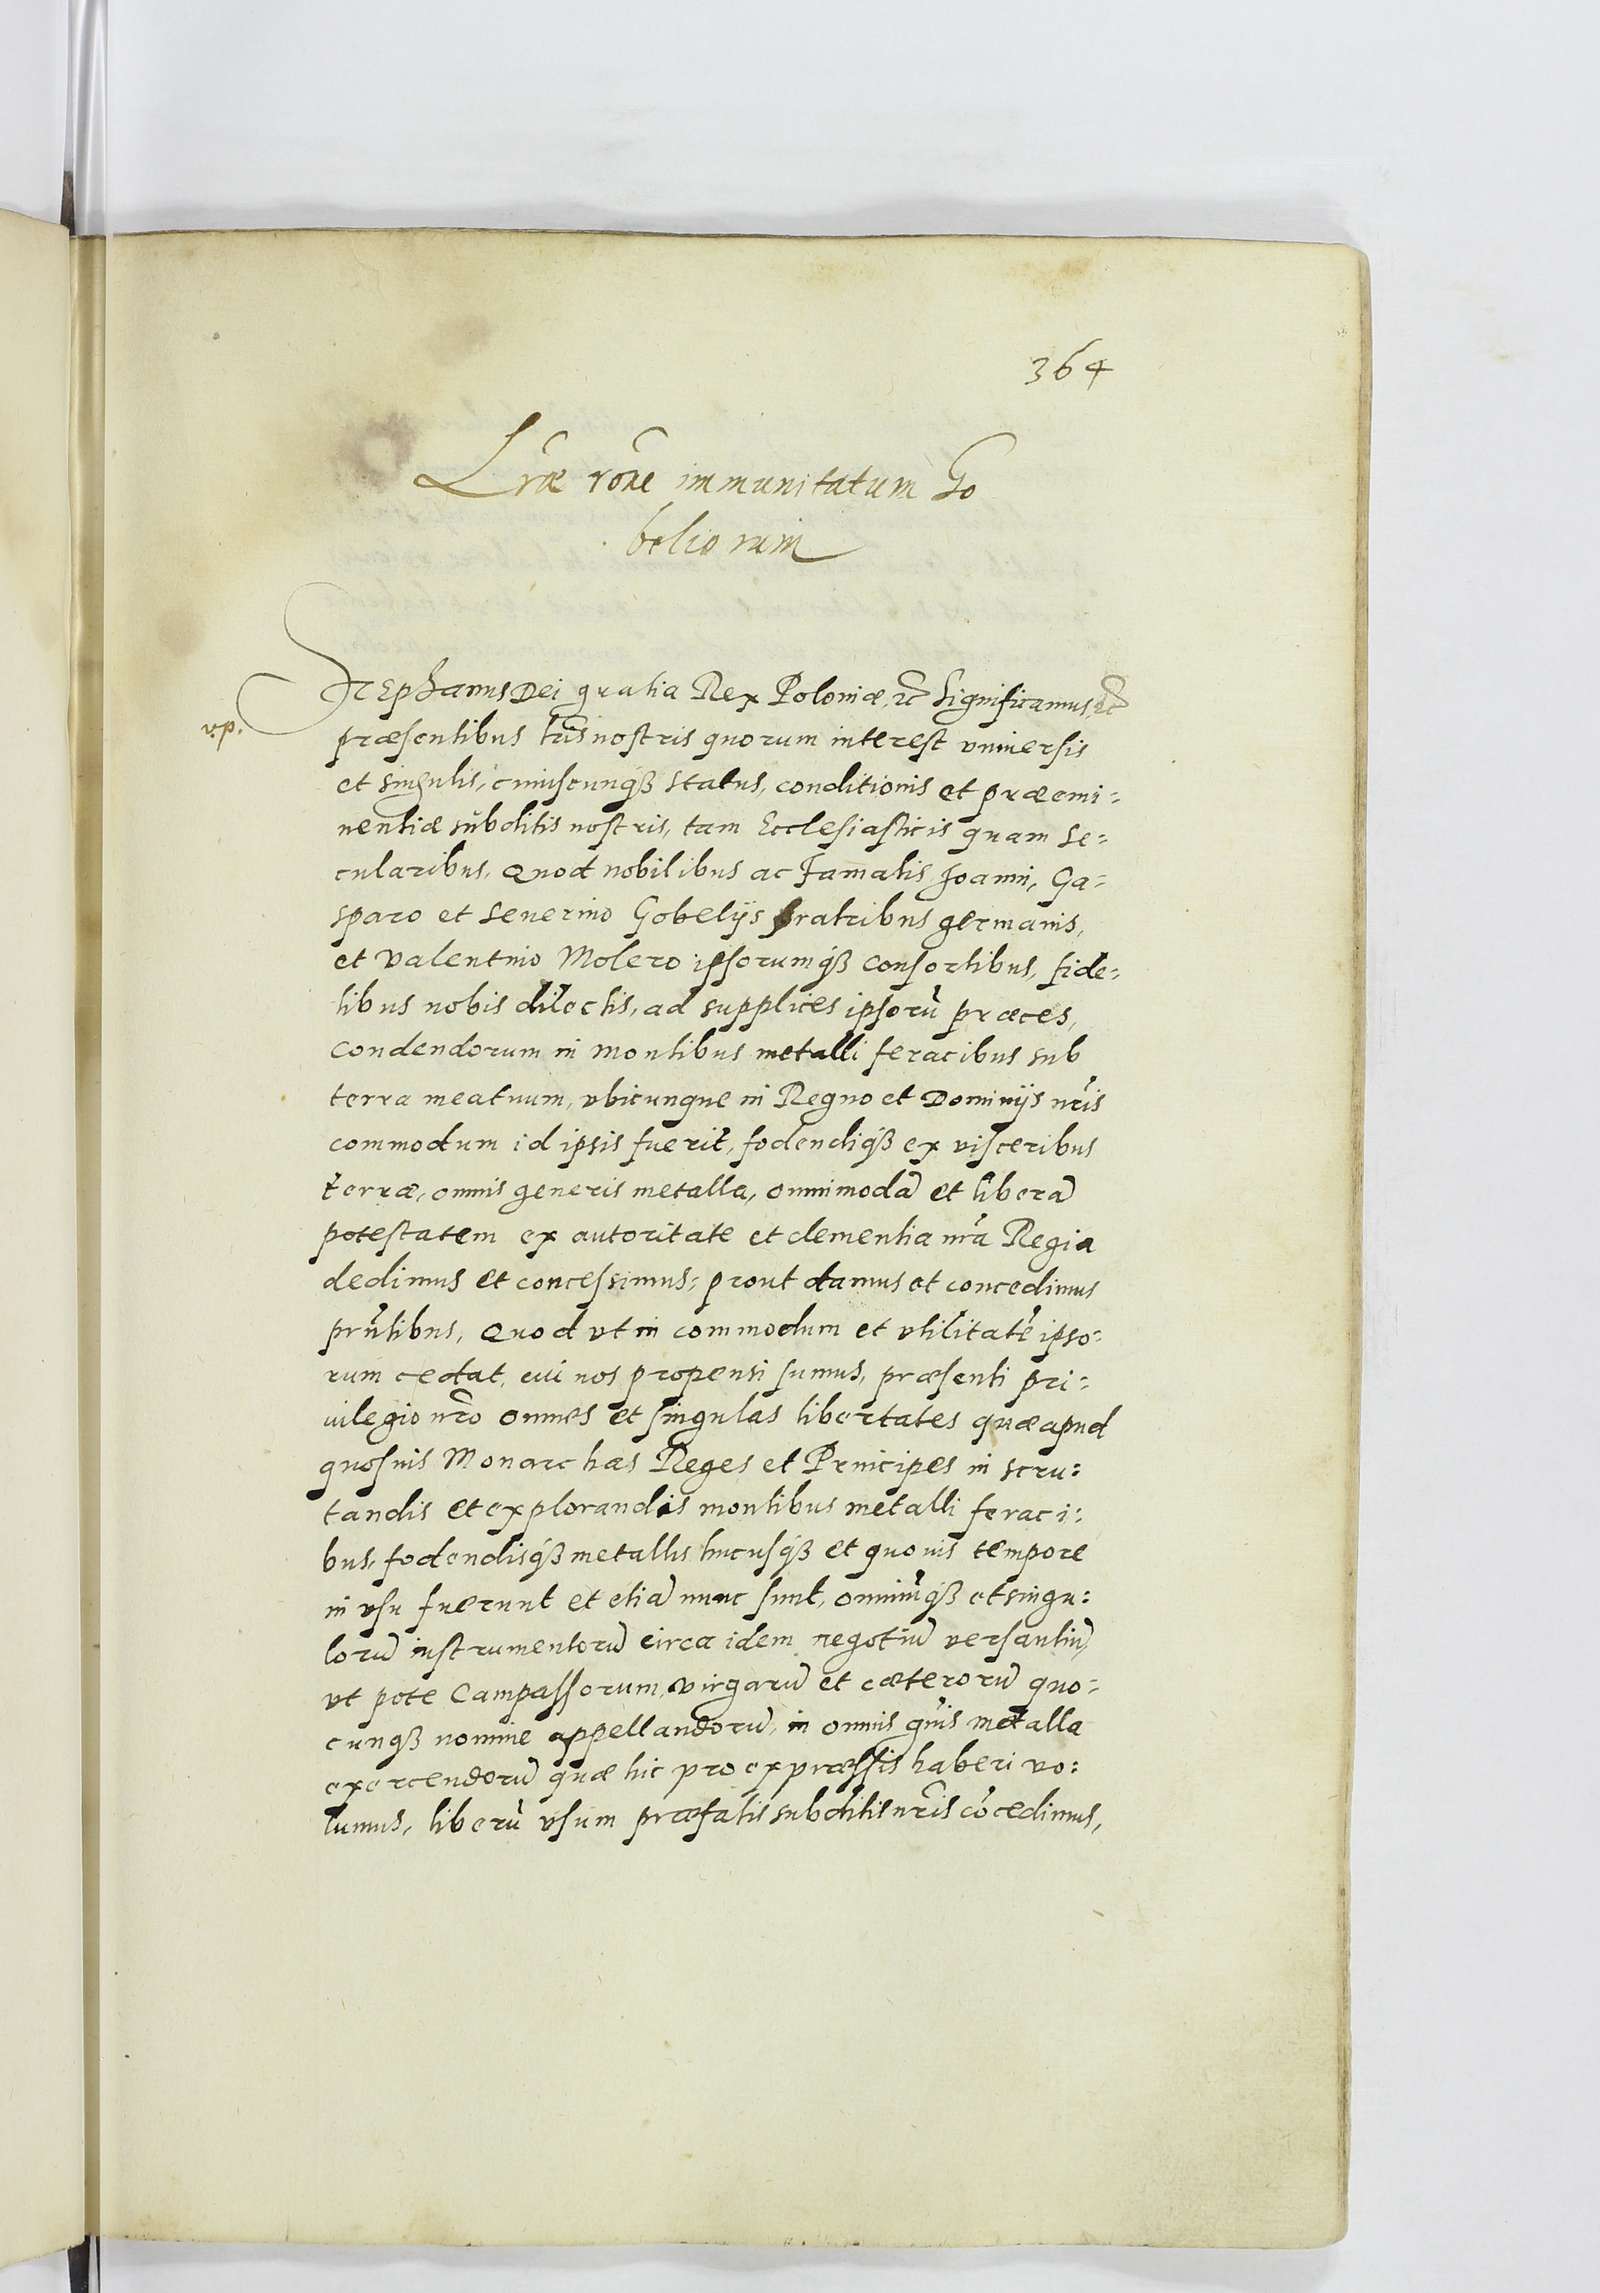 364
Lr̃æ rõne immunitatum Go
beliorum
Stephanus Dei gratia Rex Poloniæ, etc Significamus, etc
v.p.
præsentibus lr̃is nostris quorum interest vniuersis
et singulis, cuiuscunqȝ status, conditionis et præemi=
nentiæ subditis nostris, tam Ecclesiasticis quam se=
cularibus. Quod nobilibus ac Famatis Joanni, Ga=
sparo et Seuerino Gobelijs fratribus germanis,
et Valentino Molero ipsorumqȝ consortibus, fide=
libus nobis dilectis, ad supplices ipsorũ præces,
condendorum in montibus metalli feracibus sub
terra meatuum, vbicunque in Regno et Dominijs nr̃is
commodum id ipsis fuerit, fodendiqȝ ex visceribus
terræ, omnis generis metalla, omnimodã et liberã
potestatem ex autoritate et clementia nr̃a Regia
dedimus et concessimus: prout damus et concedimus
prñtibus, Quod vt in commodum et vtilitatẽ ipso=
rum cedat, cui nos propensi sumus, præsenti pri=
uilegio nr̃o omnes et singulas libertates quæ apud
quosuis Monarchas Reges et Principes in scru=
tandis et explorandis montibus metalli feraci=
bus, fodendisqȝ metallis hucusqȝ et quouis tempore
in vsu fuerunt et etiã nunc sunt, omniũqȝ et singu=
lorũ instrumentorũ circa idem negotiũ versantiũ,
vt pote Campassorum, virgarũ et cæterorũ quo=
cunqȝ nomine appellandorũ, in omnis gñis metalla
exercendorũ quæ hic pro expræssis haberi vo=
lumus, liberũ vsum præfatis subditis nr̃is cõcedimus,